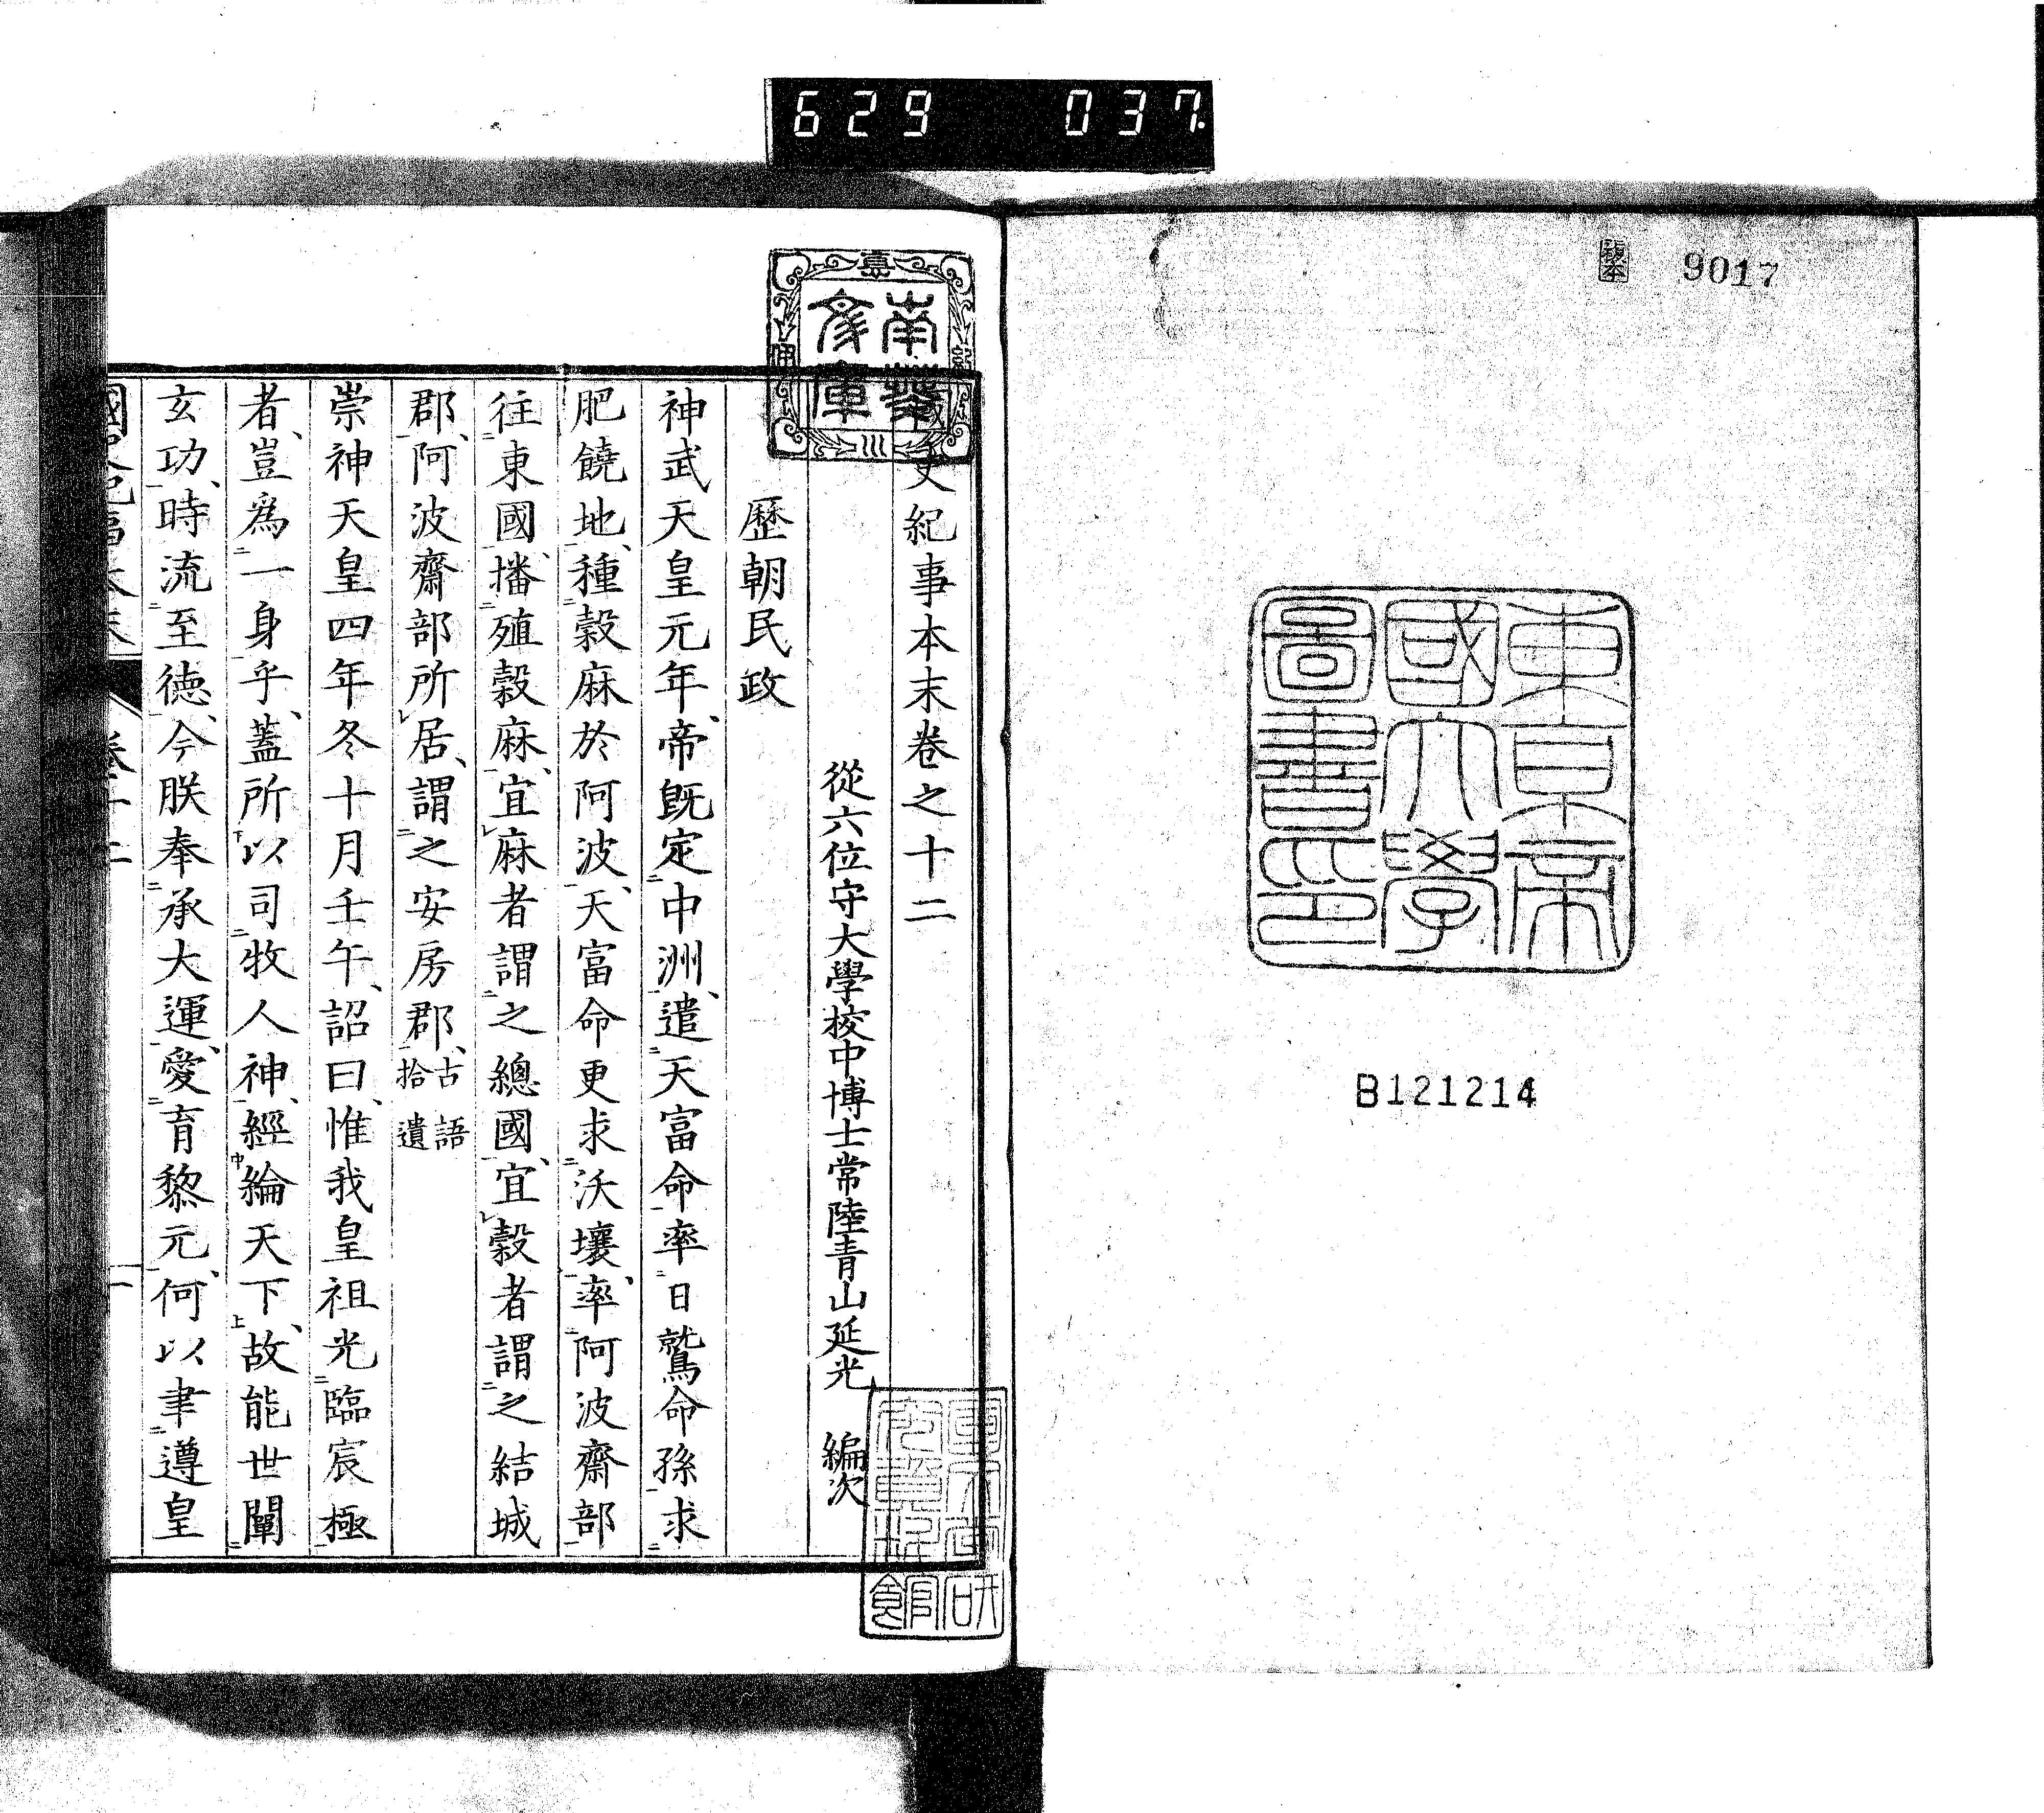 629 037
複本
9017
東京帝
國大學
圖書印
B121214
南葵
文庫
史紀事本末卷之十二
從六位守大學校中博士常陸青山延光 編次
歷朝民政
神武天皇元年、帝既定二中洲一、遣二天富命一率二日鷲命孫一求二
肥饒地一、種二穀麻於阿波一、天富命更求二沃壤一、率二阿波齋部一
往二東國一、播二殖穀麻一、宜レ麻者謂二之總國一、宜レ穀者謂二之結城
郡一、阿波齋部所レ居、謂二之安房郡一、古語
拾遺
崇神天皇四年冬十月壬午、詔曰、惟我皇祖光二臨宸極一
者、豈爲二一身一乎、蓋所下以司二牧人神一、經中綸天下上、故能世闡二
玄功一、時流二至德一、今朕奉二承大運一、愛二育黎元一、何以聿二遵皇